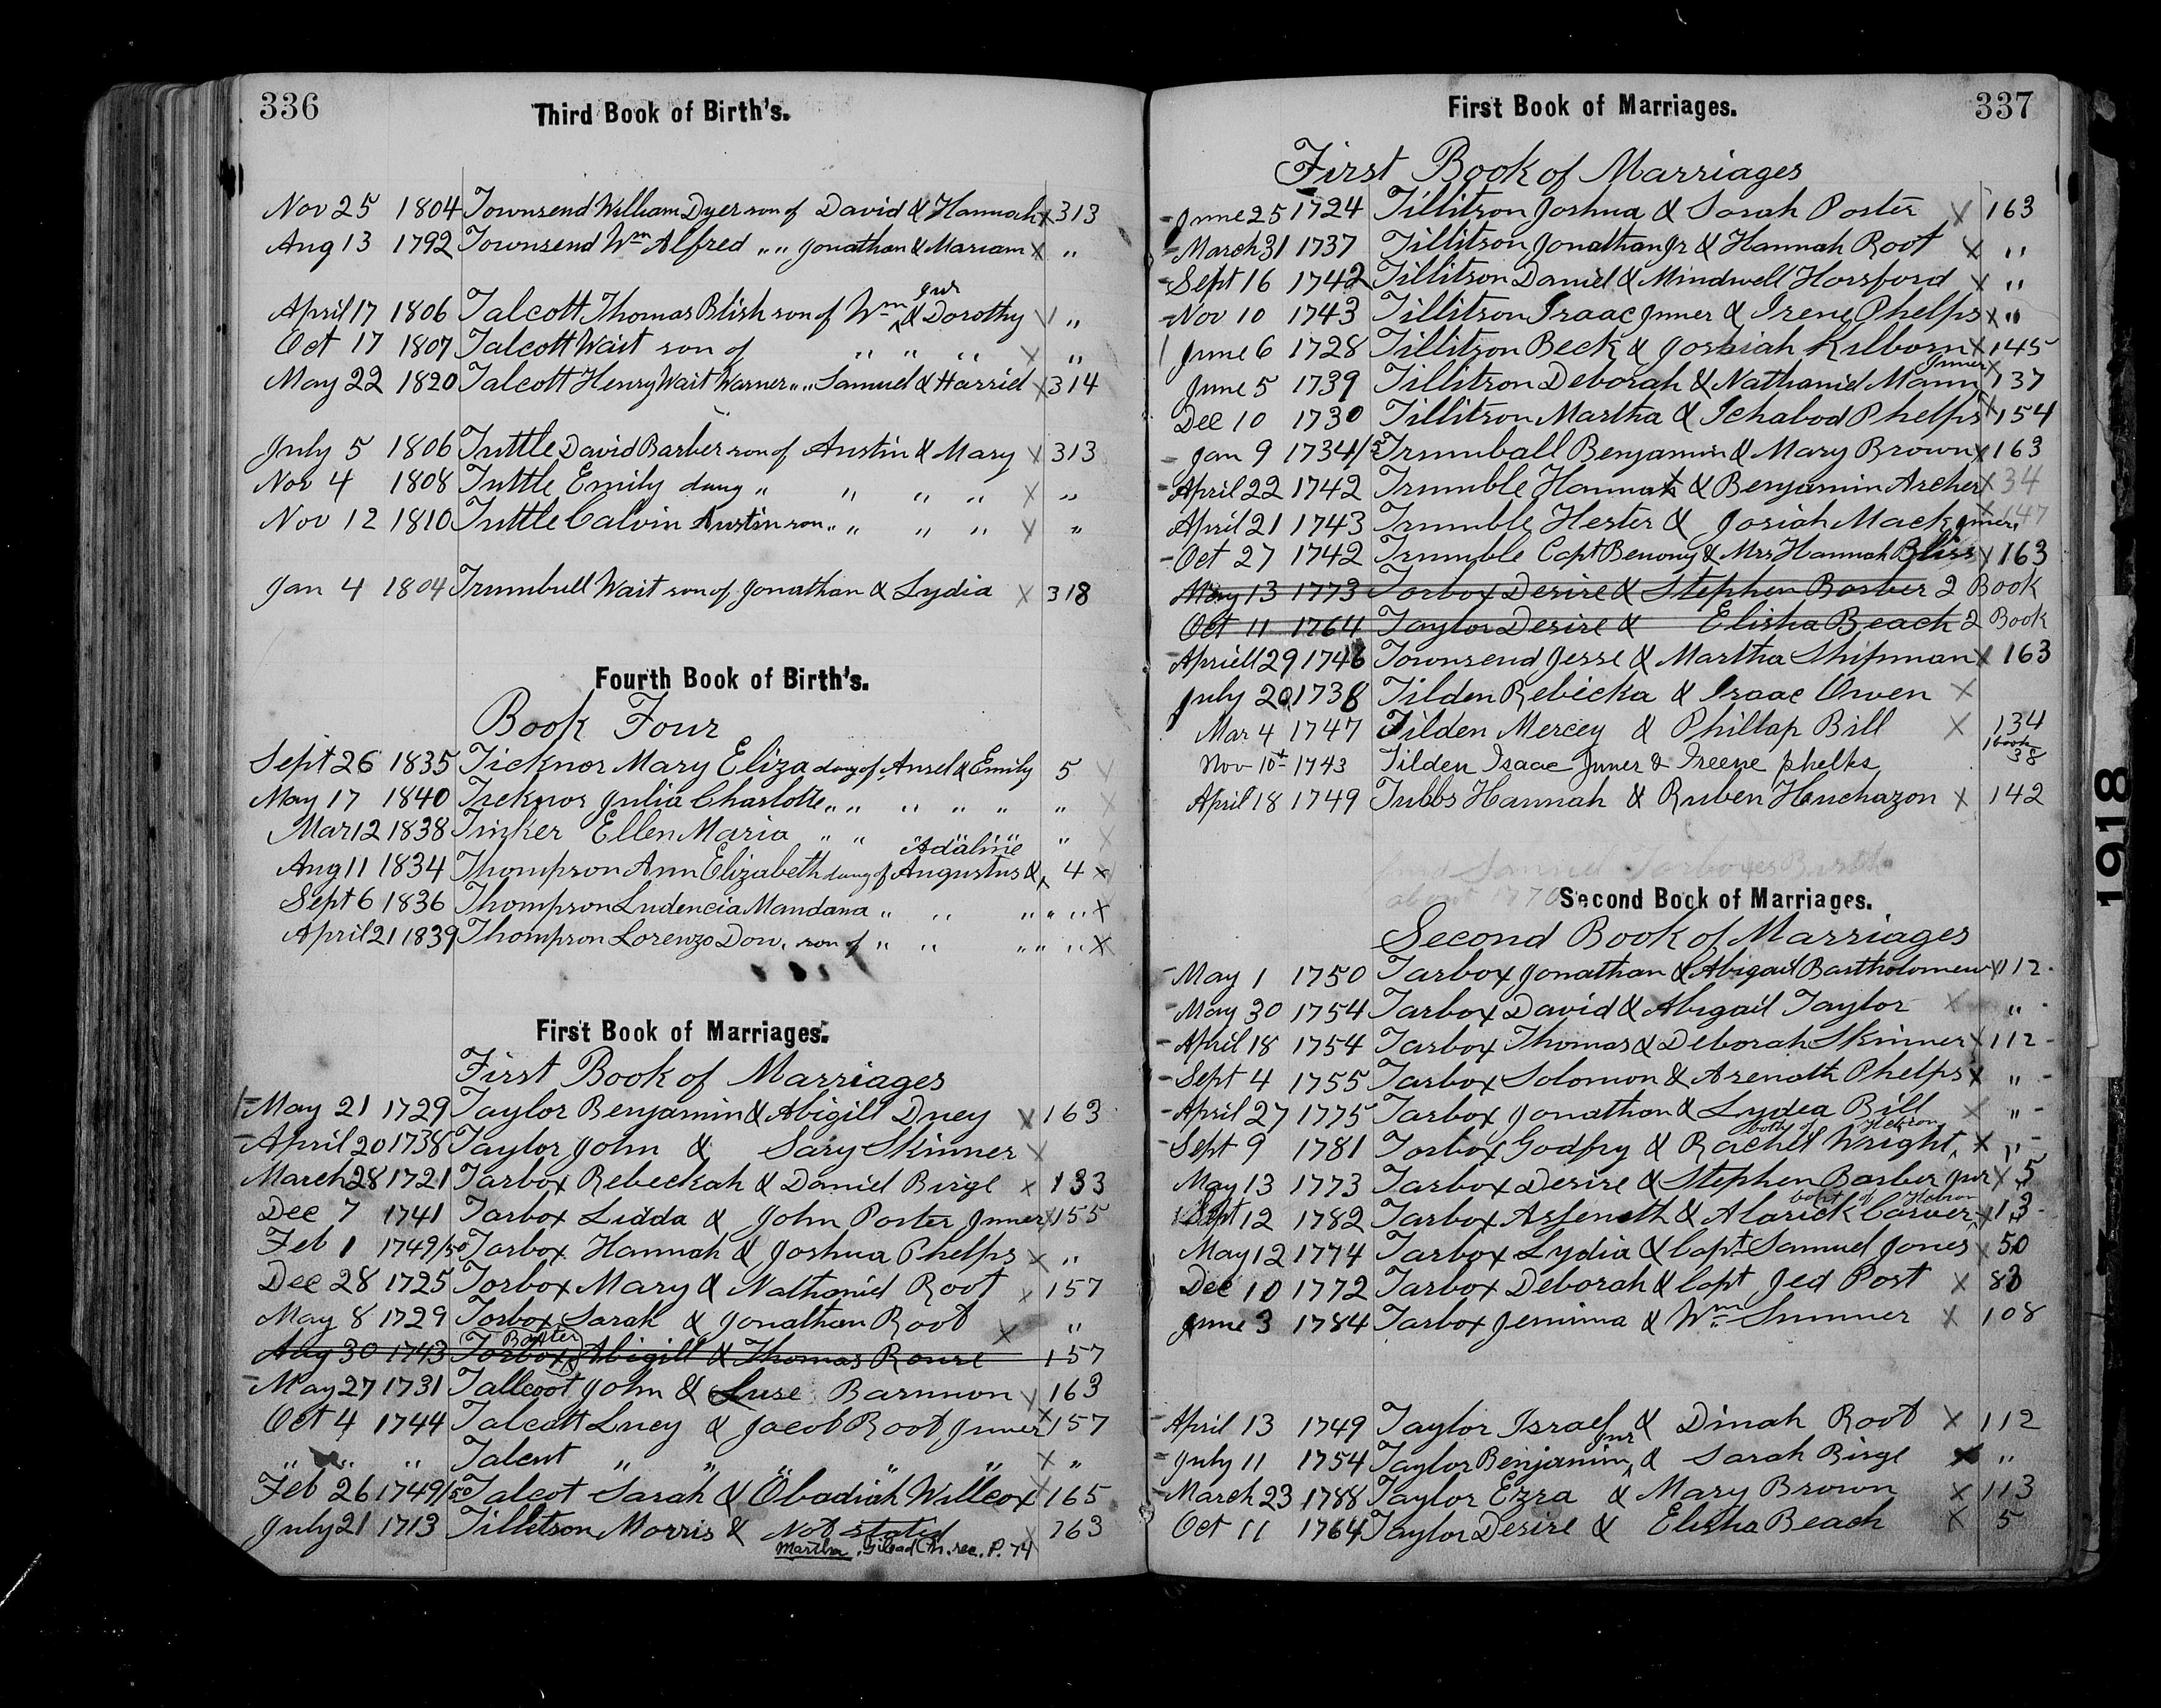 336
Third Book of Birth's.
Nov 25 1804 Townsend William Dyer son of David & Hannah x 313
Aug 13 1792 Townsend Wm Alfred " " Jonathan & Mariam x "
April 17 1806 Talcott Thomas Blish son of Wm Jur & Dorothy x "
Oct 17 1807 Talcott Wait son of " " " x "
May 22 1820 Talcott Henry Wait Warner " " Samuel & Harriel x 314
July 5 1806 Tuttle David Barber son of Austin & Mary x 313
Nov 4 1808 Tuttle Emily daug " " " " x "
Nov 12 1810 Tuttle Calvin Austin son " " " " " x "
Jan 4 1804 Trumbull Wait son of Jonathan & Lydia x 318
Fourth Book of Birth's.
Book Four
Sept 26 1835 Ticknor Mary Eliza daug of Ansel & Emily 5 x
May 17 1840 Ticknor Julia Charlotte " " " " " " x
Mar 12 1838 Tinker Ellen Maria " " " " " x
Aug 11 1834 Thompson Ann Elizabeth daug of Augustus & Adaline 4 x
Sept 6 1836 Thompson Ludencia Mandana " " " " " x
April 21 1839 Thompson Lorenzo Dow. son of " " " " " x
First Book of Marriages.
First Book of Marriages
May 21 1729 Taylor Benjamin & Abigill Duey x 163
April 20 1738 Taylor John & Sary Skinner x
March 28 1721 Tarbox Rebeckah & Daniel Birge x 133
Dec 7 1741 Tarbox Lidda & John Porter Juner x 155
Feb 1 1749/50 Tarbox Hannah & Joshua Phelps x "
Dec 28 1725 Torbox Mary & Nathaniel Root x 157
May 8 1729 Torbox Sarah & Jonathan Root x "
Aug 30 1743 Torbox Baxter Abigill & Thomas Rouse 157
May 27 1731 Tallcoot John & Luse Barnnon x 163
Oct 4 1744 Talcott Lucy & Jacob Root Juner x 157
" " " Talcut " " " " " x "
Feb 26 1749/50 Talcot Sarah & Obadiah Willcox x 165
July 21 1713 Tilletson Morris & Not stated x 163
Martha. Gilead Ch. rec. P. 74
337
First Book of Marriages.
First Book of Marriages
June 25 1724 Tillitson Joshua & Sarah Porter x 163
March 31 1737 Tillitson Jonathan Jr & Hannah Root x "
Sept 16 1742 Tillitson Daniel & Mindwell Horsford x "
Nov 10 1743 Tillitson Isaac Juner & Irene Phelps x "
June 6 1728 Tillitson Beck & Josiah Kilborn x 145
June 5 1739 Tillitson Deborah & Nathaniel Mann Juner x 137
Dec 10 1730 Tillitson Martha & Ichabod Phelps x 154
Jan 9 1734/5 Trumball Benjamin & Mary Brown x 163
April 22 1742 Trumble Hannah & Benjamin Archer x 34
April 21 1743 Trumble Hester & Josiah Mack Juner x 147
Oct 27 1742 Trumble Capt Benony & Mrs Hannah Bliss x 163
May 13 1773 Torbox Desire & Stephen Barber 2 Book
Oct 11 1764 Taylor Desire & Elisha Beach 2 Book
Aprill 29 1746 Townsend Jesse & Martha Shipman x 163
July 20 1738 Tilden Rebicka & Isaac Owen x
Mar 4 1747 Tilden Mercey & Phillap Bill x 134
Nov 10th 1743 Tilden Isaac Juner & Ireene phelks 1 book 38
April 18 1749 Tubbs Hannah & Ruben Huchazon x 142
find Samuel Tarboxes Birth
about 1770
Second Book of Marriages.
Second Book of Marriages
May 1 1750 Tarbox Jonathan & Abigail Bartholomew x 112
May 30 1754 Tarbox David & Abigail Taylor x "
April 18 1754 Tarbox Thomas & Deborah Skinner x 112
Sept 4 1755 Tarbox Solomon & Asenath Phelps x "
April 27 1775 Tarbox Jonathan & Lydea Bill x "
Sept 9 1781 Torbox Godfry & Rachel Wright both of Hebron x "
May 13 1773 Tarbox Desire & Stephen Barber Jur x 5
Sept 12 1782 Tarbox Asseneth & Alarick Carver both of Hebron x 13
May 12 1774 Tarbox Lydia & Capt Samuel Jones x 50
Dec 10 1772 Tarbox Deborah & Capt Jed Post x 83
June 3 1784 Tarbox Jemima & Wm Sumner x 108
April 13 1749 Taylor Israel & Dinah Root x 112
July 11 1754 Taylor Benjamin Jur & Sarah Birge x "
March 23 1788 Taylor Ezra & Mary Brown x 113
Oct 11 1764 Taylor Desire & Elisha Beach x 5
1918